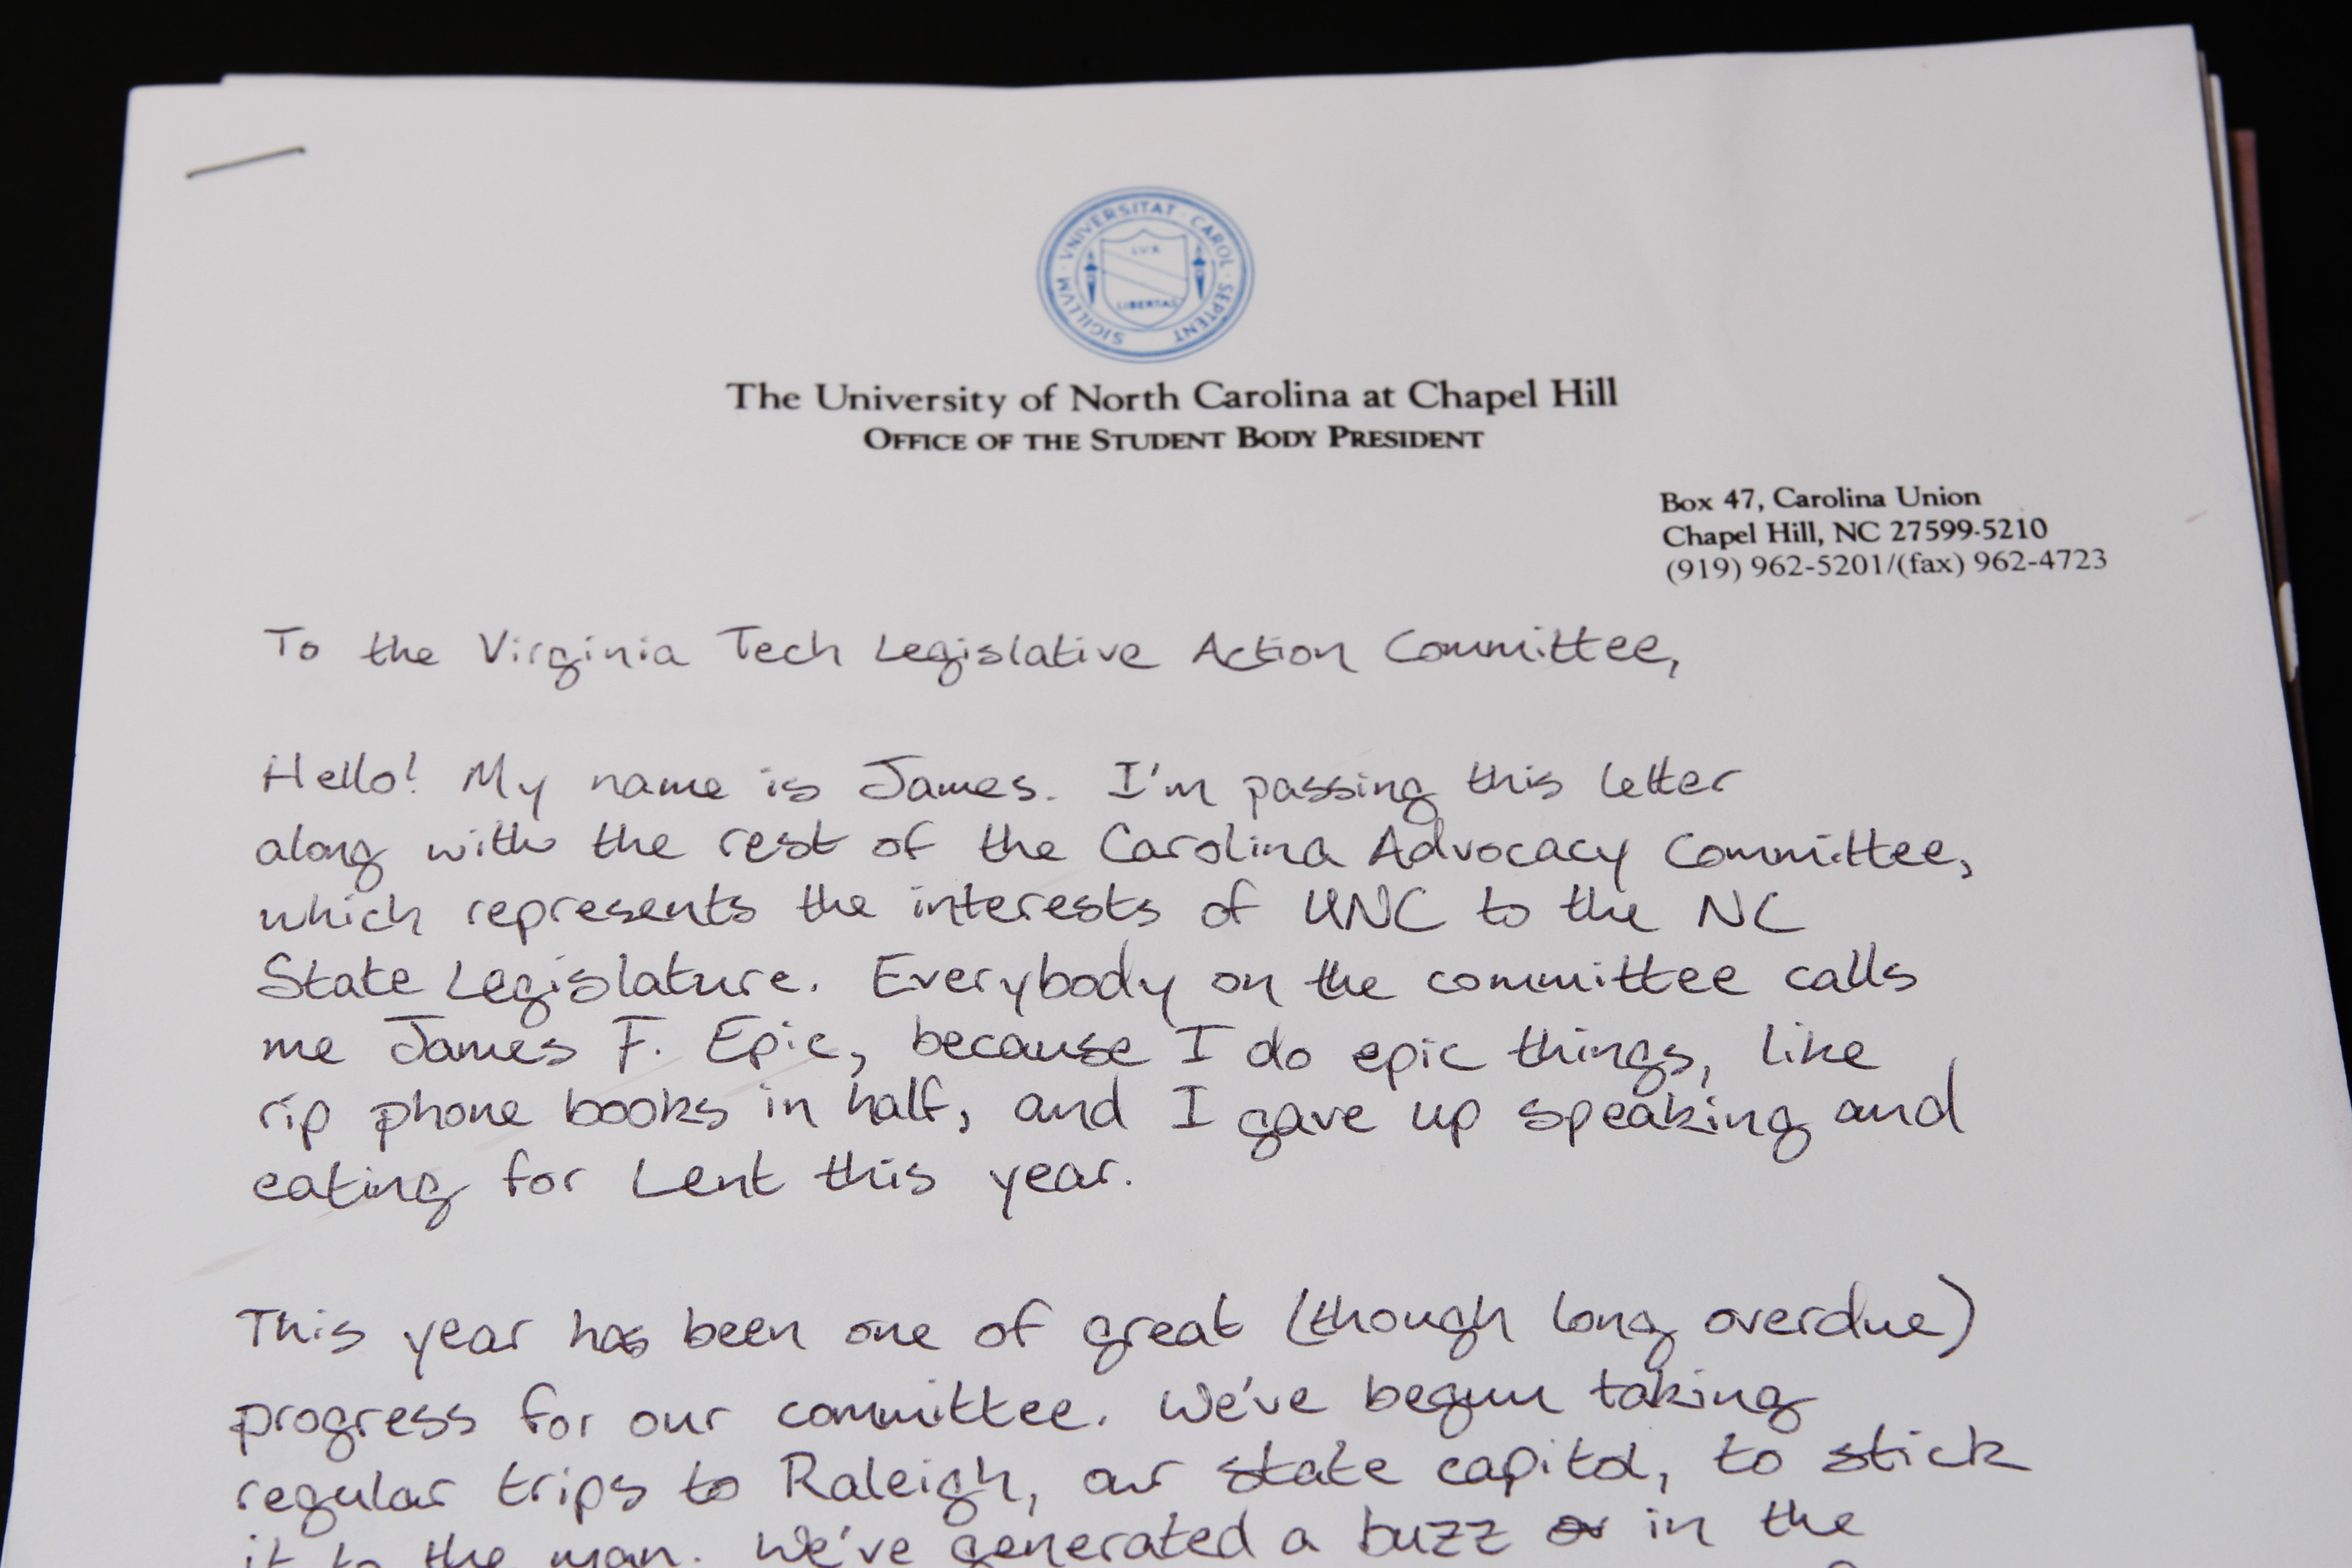 SIGILLVM · VNIVERSITAT · CAROL · SEPTENT
LVX
LIBERTAS
The University of North Carolina at Chapel Hill
OFFICE OF THE STUDENT BODY PRESIDENT
Box 47, Carolina Union
Chapel Hill, NC 27599-5210
(919) 962-5201/(fax) 962-4723
To the Virginia Tech Legislative Action Committee,
Hello! My name is James. I'm passing this letter
along with the rest of the Carolina Advocacy Committee,
which represents the interests of UNC to the NC
State Legislature. Everybody on the committee calls
me James F. Epic, because I do epic things, like
rip phone books in half, and I gave up speaking and
eating for Lent this year.
This year has been one of great (though long overdue)
progress for our committee. We've begun taking
regular trips to Raleigh, our state capitol, to stick
it to the man. We've generated a buzz in the